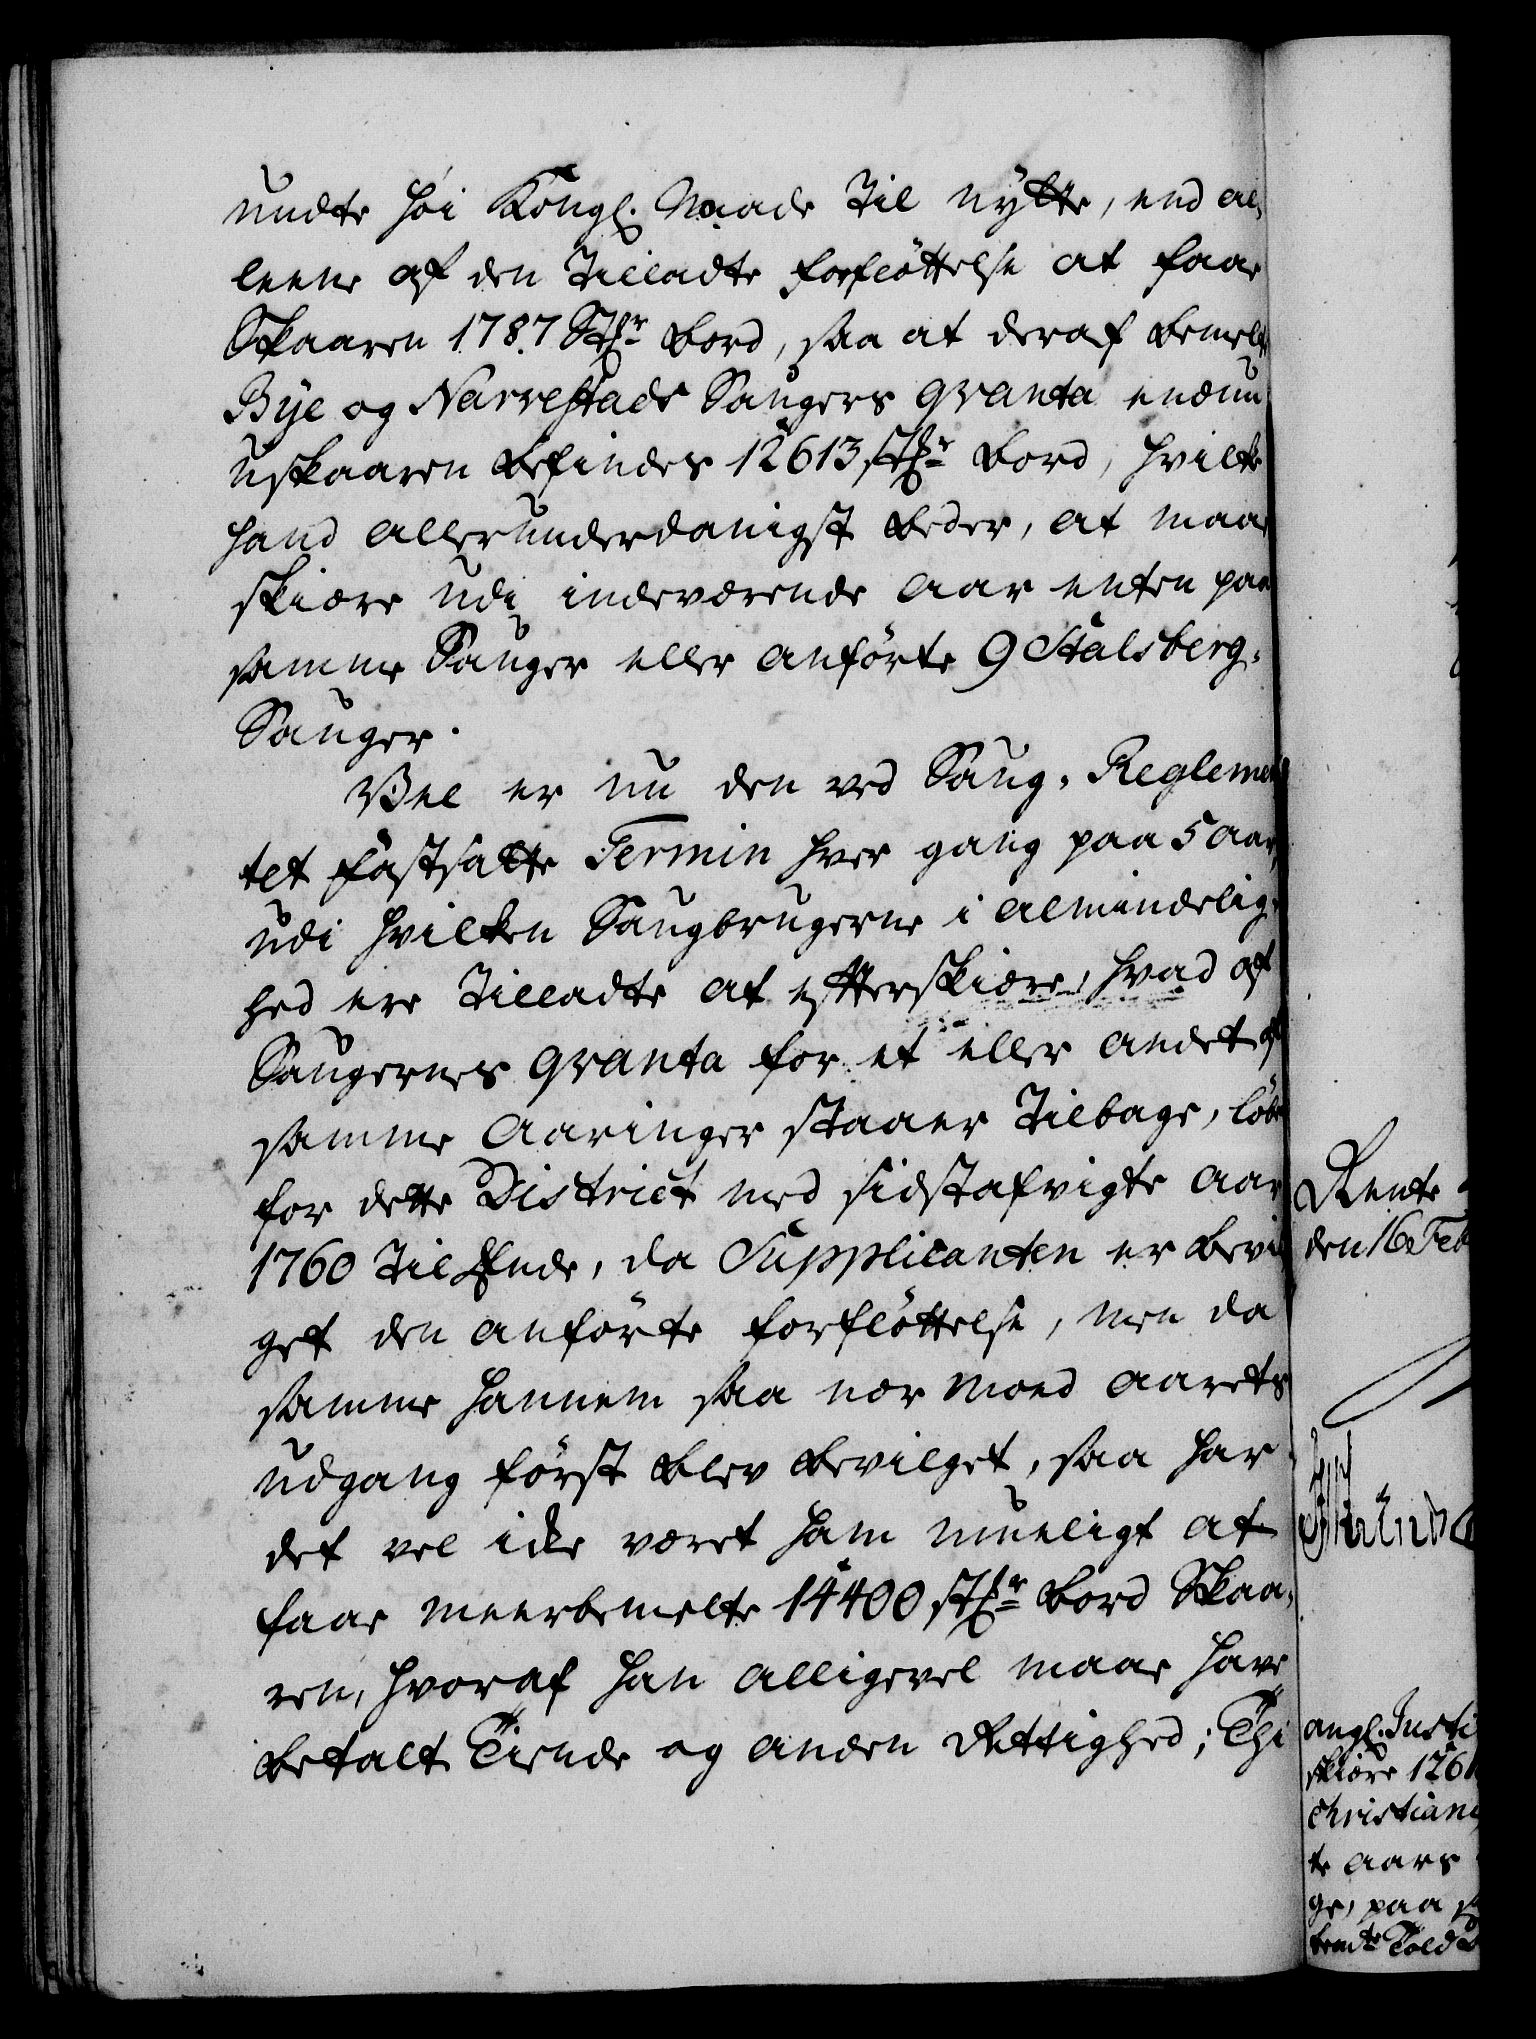 undte høi Kongl. Naade til nytte, end al-
leene af den tilladte forflöttelse at faae
Skaaren 1787 Stkr Bord, saa at deraf bemelte
Bye og Narrestads Saugers qvanta endnu
uskaaren befindes 12613 stkr Bord, hvilke
hand allerunderdanigst beder, at maae
skiære udi indeværende Aar enten paa
samme Sauger eller anförte 9 Stalsberg-
Sauger.
Vel er nu den ved Saug-Reglemen-
tet fastsatte Termin hver gang paa 5 Aar,
udi hvilken Saugbrugerne i Almindelig-
hed ere tilladte at efterskiære, hvad af
Saugernes qvanta for et eller andet af
samme Aaringer staaer tilbage, löbe
for dette District med sidstafvigte Aar
1760 til Ende, da Supplicanten er bevil-
get den anförte forflöttelse, men da
samme hannem saa nær moed Aarets
udgang först blev bevilget, saa har
det vel icke været ham mueligt at
faae meerbemelte 14400 stkr Bord Skaa-
ren, hvoraf han alligevel maae have
betalt Tiende og anden Rettighed; Thi
Rente
den 16 Feb
angl. Justi
skiære 1261
Christiani
te Aars
ge, paa
Told